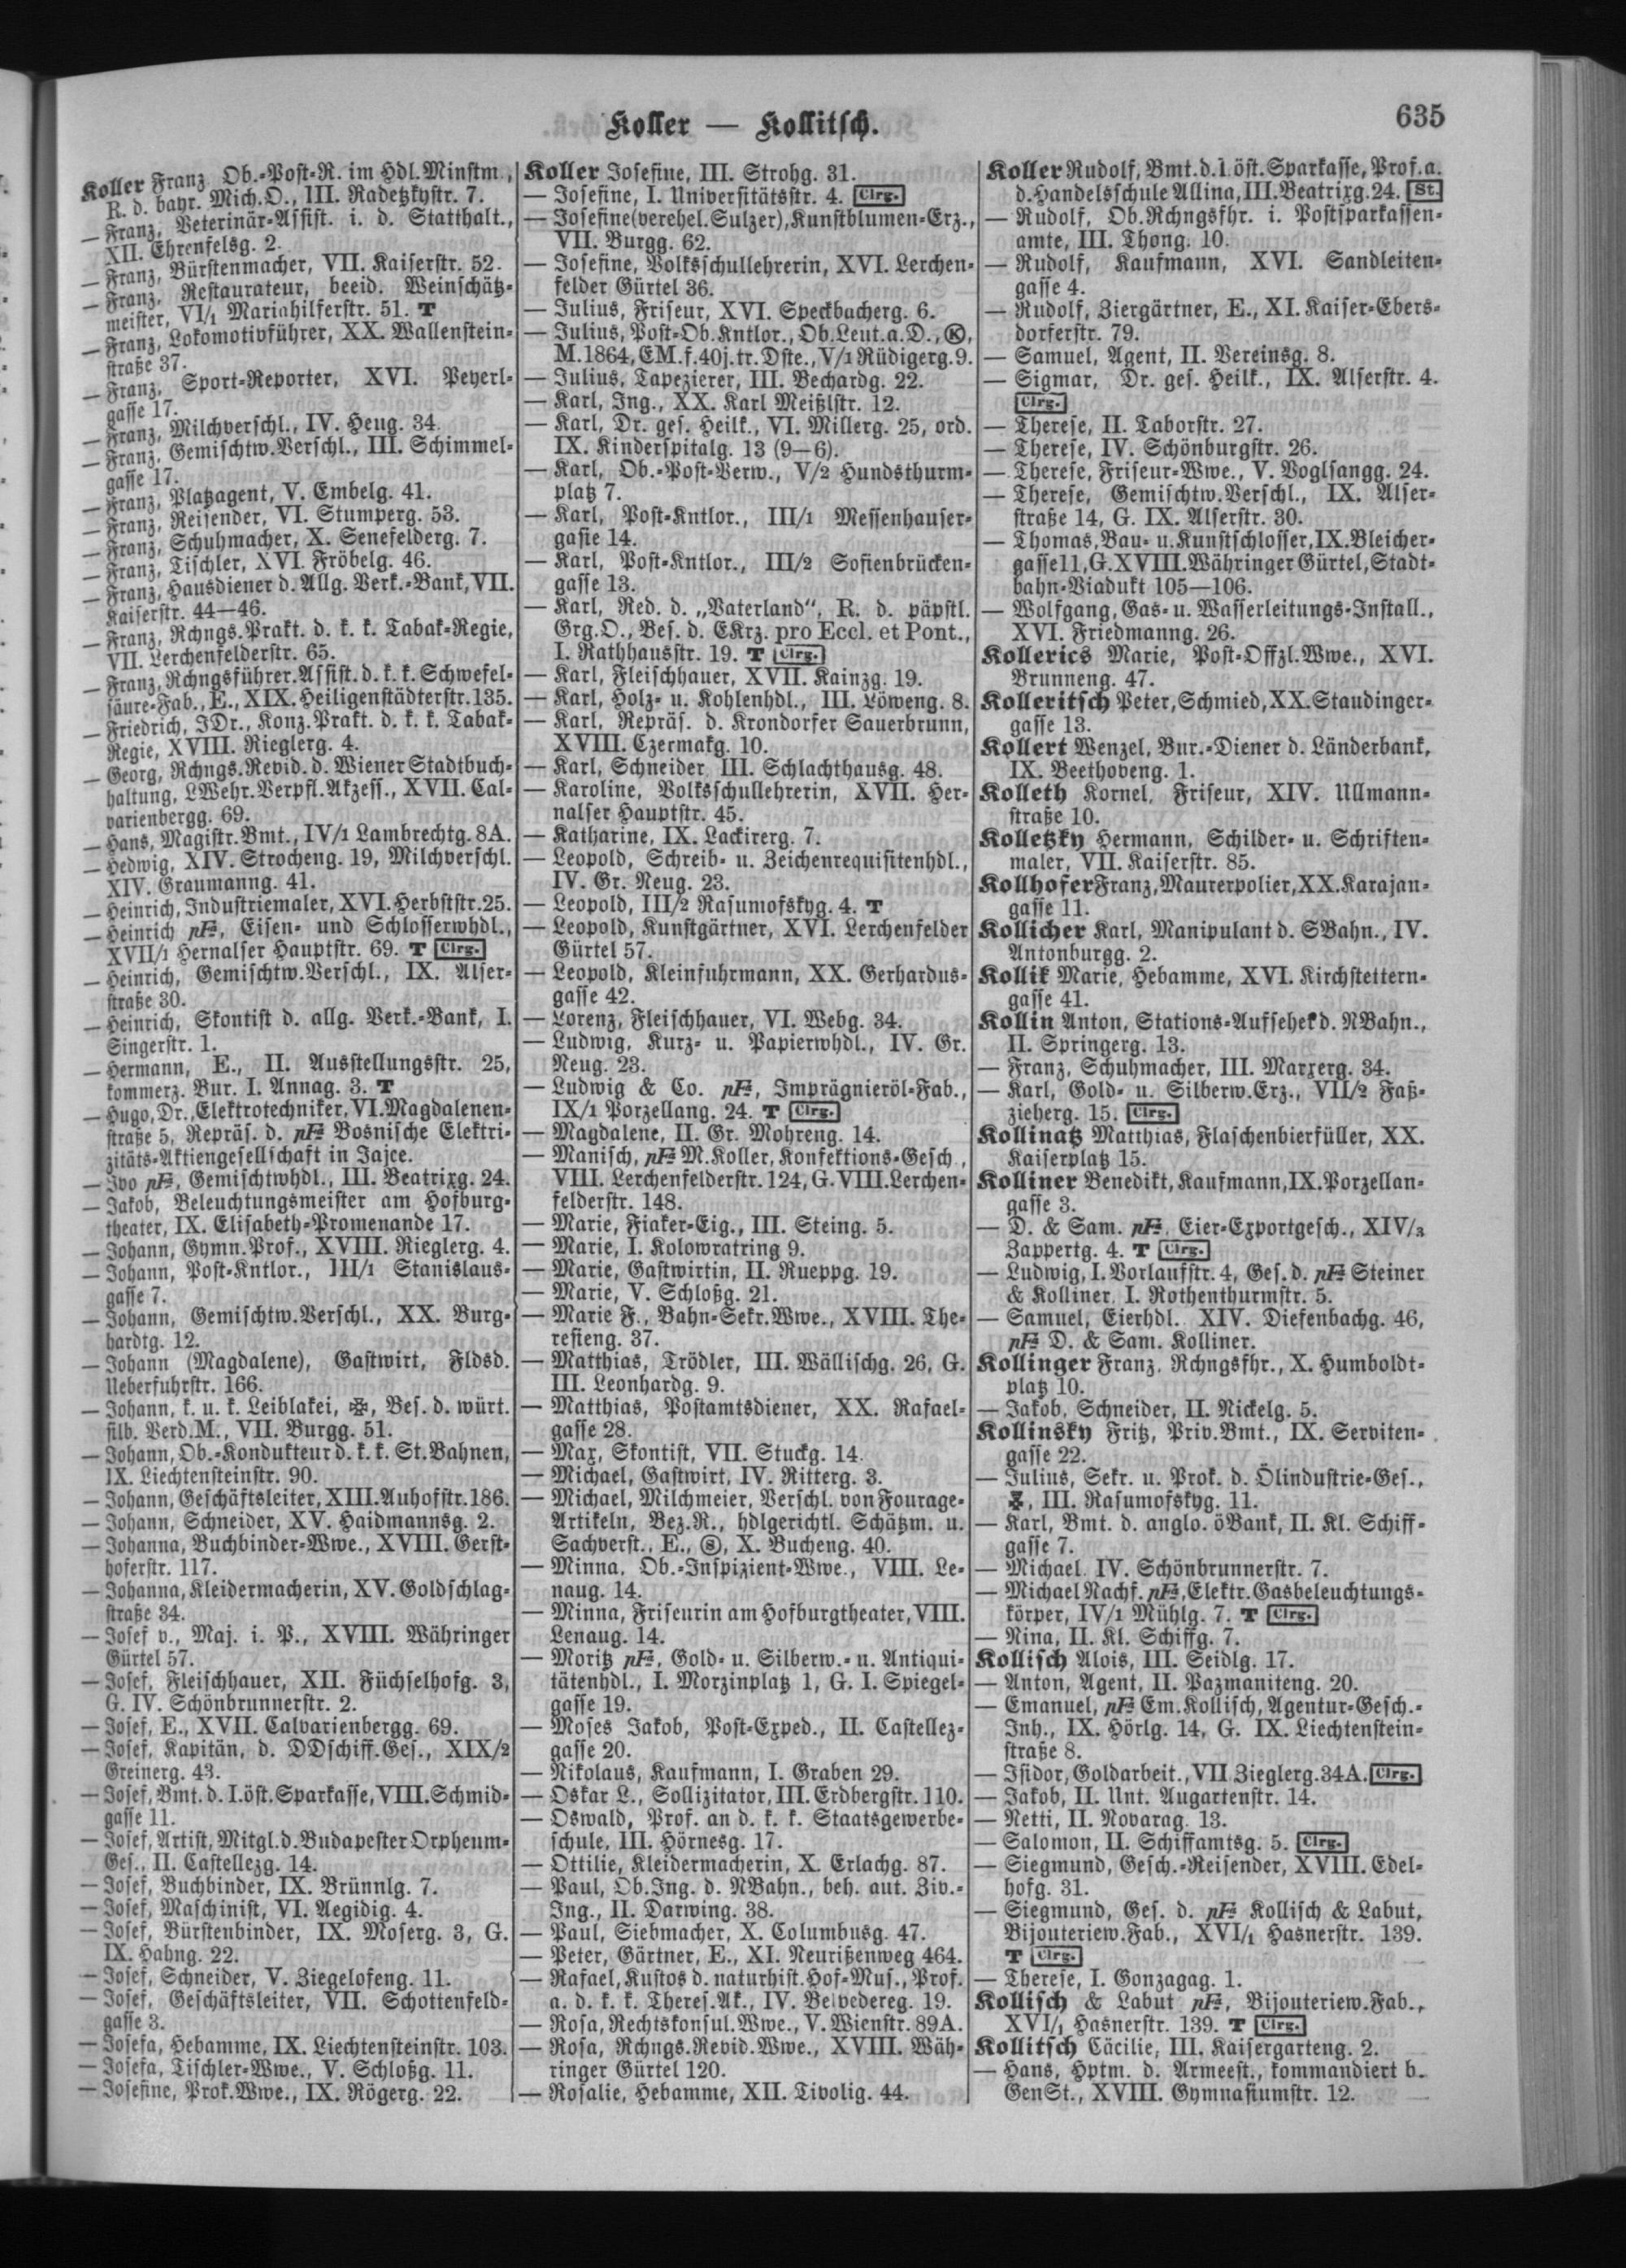 Koller — Kollitsch.
635
Koller Franz Ob.-Post-R. im Hdl.Minstm.,
R. d. bayr. Mich.O., III. Radetzkystr. 7.
— Franz, Veterinär-Assist. i. d. Statthalt.,
XII. Ehrenfelsg. 2.
— Franz, Bürstenmacher, VII. Kaiserstr. 52.
— Franz, Restaurateur, beeid. Weinschätz-
meister, VI/1 Mariahilferstr. 51. T
— Franz, Lokomotivführer, XX. Wallenstein-
straße 37.
— Franz, Sport-Reporter, XVI. Peyerl-
gasse 17.
— Franz, Milchverschl., IV. Heug. 34.
— Franz, Gemischtw.Verschl., III. Schimmel-
gasse 17.
— Franz, Platzagent, V. Embelg. 41.
— Franz, Reisender, VI. Stumperg. 53.
— Franz, Schuhmacher, X. Senefelderg. 7.
— Franz, Tischler, XVI. Fröbelg. 46.
— Franz, Hausdiener d. Allg. Verk.-Bank, VII.
Kaiserstr. 44—46.
— Franz, Rchngs.Prakt. d. k. k. Tabak-Regie,
VII. Lerchenfelderstr. 65.
— Franz, Rchngsführer.Assist. d. k. k. Schwefel-
säure-Fab., E., XIX. Heiligenstädterstr. 135.
— Friedrich, JDr., Konz.Prakt. d. k. k. Tabak-
Regie, XVIII. Rieglerg. 4.
— Georg, Rchngs.Revid. d. Wiener Stadtbuch-
haltung, LWehr.Verpfl.Akzess., XVII. Cal-
varienbergg. 69.
— Hans, Magistr.Bmt., IV/1 Lambrechtg. 8A.
— Hedwig, XIV. Strocheng. 19, Milchverschl.
XIV. Graumanng. 41.
— Heinrich, Industriemaler, XVI. Herbststr. 25.
— Heinrich pFa, Eisen- und Schlosserwhdl.,
XVII/1 Hernalser Hauptstr. 69. T Clrg.
— Heinrich, Gemischtw.Verschl., IX. Alser-
straße 30.
— Heinrich, Skontist d. allg. Verk.-Bank, I.
Singerstr. 1.
— Hermann, E., II. Ausstellungsstr. 25,
kommerz. Bur. I. Annag. 3. T
— Hugo, Dr., Elektrotechniker, VI. Magdalenen-
straße 5, Repräs. d. pFa Bosnische Elektri-
zitäts-Aktiengesellschaft in Jajce.
— Ivo pFa, Gemischtwhdl., III. Beatrixg. 24.
— Jakob, Beleuchtungsmeister am Hofburg-
theater, IX. Elisabeth-Promenande 17.
— Johann, Gymn.Prof., XVIII. Rieglerg. 4.
— Johann, Post-Kntlor., III/1 Stanislaus-
gasse 7.
— Johann, Gemischtw.Verschl., XX. Burg-
hardtg. 12.
— Johann (Magdalene), Gastwirt, Fldsd.
Ueberfuhrstr. 166.
— Johann, k. u. k. Leiblakei, Bes. d. würt.
silb. Verd.M., VII. Burgg. 51.
— Johann, Ob.-Kondukteur d. k. k. St.Bahnen,
IX. Liechtensteinstr. 90.
— Johann, Geschäftsleiter, XIII. Auhofstr. 186.
— Johann, Schneider, XV. Haidmannsg. 2.
— Johanna, Buchbinder-Wwe., XVIII. Gerst-
hoferstr. 117.
— Johanna, Kleidermacherin, XV. Goldschlag-
straße 34.
— Josef v., Maj. i. P., XVIII. Währinger
Gürtel 57.
— Josef, Fleischhauer, XII. Füchselhofg. 3,
G. IV. Schönbrunnerstr. 2.
— Josef, E., XVII. Calvarienbergg. 69.
— Josef, Kapitän, d. DDschiff.Ges., XIX/2
Greinerg. 43.
— Josef, Bmt. d. I.öst.Sparkasse, VIII. Schmid-
gasse 11.
— Josef, Artist, Mitgl. d. Budapester Orpheum-
Ges., II. Castellezg. 14.
— Josef, Buchbinder, IX. Brünnlg. 7.
— Josef, Maschinist, VI. Aegidig. 4.
— Josef, Bürstenbinder, IX. Moserg. 3, G.
IX. Hahng. 22.
— Josef, Schneider, V. Ziegelofeng. 11.
— Josef, Geschäftsleiter, VII. Schottenfeld-
gasse 3.
— Josefa, Hebamme, IX. Liechtensteinstr. 103.
— Josefa, Tischler-Wwe., V. Schloßg. 11.
— Josefine, Prok.Wwe., IX. Rögerg. 22.
Koller Josefine, III. Strohg. 31.
— Josefine, I. Universitätsstr. 4. Clrg.
— Josefine (verehel. Sulzer), Kunstblumen-Erz.,
VII. Burgg. 62.
— Josefine, Volksschullehrerin, XVI. Lerchen-
felder Gürtel 36.
— Julius, Friseur, XVI. Speckbacherg. 6.
— Julius, Post-Ob.Kntlor., Ob.Leut.a.D., K,
M.1864, EM.f.40j.tr.Dste., V/1 Rüdigerg. 9.
— Julius, Tapezierer, III. Bechardg. 22.
— Karl, Ing., XX. Karl Meißlstr. 12.
— Karl, Dr. ges. Heilk., VI. Millerg. 25, ord.
IX. Kinderspitalg. 13 (9—6).
— Karl, Ob.-Post-Verw., V/2 Hundsthurm-
platz 7.
— Karl, Post-Kntlor., III/1 Messenhauser-
gasse 14.
— Karl, Post-Kntlor., III/2 Sofienbrücken-
gasse 13.
— Karl, Red. d. „Vaterland“, R. d. päpstl.
Grg.O., Bes. d. EKrz. pro Eccl. et Pont.,
I. Rathhausstr. 19. T Clrg.
— Karl, Fleischhauer, XVII. Kainzg. 19.
— Karl, Holz- u. Kohlenhdl., III. Löweng. 8.
— Karl, Repräs. d. Krondorfer Sauerbrunn,
XVIII. Czermakg. 10.
— Karl, Schneider III. Schlachthausg. 48.
— Karoline, Volksschullehrerin, XVII. Her-
nalser Hauptstr. 45.
— Katharine, IX. Lackirerg. 7.
— Leopold, Schreib- u. Zeichenrequisitenhdl.,
IV. Gr. Neug. 23.
— Leopold, III/2 Rasumofskyg. 4. T
— Leopold, Kunstgärtner, XVI. Lerchenfelder
Gürtel 57.
— Leopold, Kleinfuhrmann, XX. Gerhardus-
gasse 42.
— Lorenz, Fleischhauer, VI. Webg. 34.
— Ludwig, Kurz- u. Papierwhdl., IV. Gr.
Neug. 23.
— Ludwig & Co. pFa, Imprägnieröl-Fab.,
IX/1 Porzellang. 24. T Clrg.
— Magdalene, II. Gr. Mohreng. 14.
— Manisch, pFa M.Koller, Konfektions-Gesch.,
VIII. Lerchenfelderstr. 124, G. VIII. Lerchen-
felderstr. 148.
— Marie, Fiaker-Eig., III. Steing. 5.
— Marie, I. Kolowratring 9.
— Marie, Gastwirtin, II. Rueppg. 19.
— Marie, V. Schloßg. 21.
— Marie F., Bahn-Sekr.Wwe., XVIII. The-
resieng. 37.
— Matthias, Trödler, III. Wällischg. 26, G.
III. Leonhardg. 9.
— Matthias, Postamtsdiener, XX. Rafael-
gasse 28.
— Max, Skontist, VII. Stuckg. 14.
— Michael, Gastwirt, IV. Ritterg. 3.
— Michael, Milchmeier, Verschl. von Fourage-
Artikeln, Bez.R., hdlgerichtl. Schätzm. u.
Sachverst., E., S, X. Bucheng. 40.
— Minna, Ob.-Inspizient-Wwe., VIII. Le-
naug. 14.
— Minna, Friseurin am Hofburgtheater, VIII.
Lenaug. 14.
— Moritz pFa, Gold- u. Silberw.- u. Antiqui-
tätenhdl., I. Morzinplatz 1, G. I. Spiegel-
gasse 19.
— Moses Jakob, Post-Exped., II. Castellez-
gasse 20.
— Nikolaus, Kaufmann, I. Graben 29.
— Oskar L., Sollizitator, III. Erdbergstr. 110.
— Oswald, Prof. an d. k. k. Staatsgewerbe-
schule, III. Hörnesg. 17.
— Ottilie, Kleidermacherin, X. Erlachg. 87.
— Paul, Ob.Ing. d. NBahn., beh. aut. Ziv.-
Ing., II. Darwing. 38.
— Paul, Siebmacher, X. Columbusg. 47.
— Peter, Gärtner, E., XI. Neurißenweg 464.
— Rafael, Kustos d. naturhist. Hof-Mus., Prof.
a. d. k. k. Theres.Ak., IV. Belvedereg. 19.
— Rosa, Rechtskonsul.Wwe., V. Wienstr. 89A.
— Rosa, Rchngs.Revid.Wwe., XVIII. Wäh-
ringer Gürtel 120.
— Rosalie, Hebamme, XII. Tivolig. 44.
Koller Rudolf, Bmt. d. I. öst. Sparkasse, Prof. a.
d. Handelsschule Allina, III. Beatrixg. 24. St.
— Rudolf, Ob.Rchngsfhr. i. Postsparkassen-
amte, III. Thong. 10.
— Rudolf, Kaufmann, XVI. Sandleiten-
gasse 4.
— Rudolf, Ziergärtner, E., XI. Kaiser-Ebers-
dorferstr. 79.
— Samuel, Agent, II. Vereinsg. 8.
— Sigmar, Dr. ges. Heilk., IX. Alserstr. 4.
Clrg.
— Therese, II. Taborstr. 27.
— Therese, IV. Schönburgstr. 26.
— Therese, Friseur-Wwe., V. Voglsangg. 24.
— Therese, Gemischtw.Verschl., IX. Alser-
straße 14, G. IX. Alserstr. 30.
— Thomas, Bau- u. Kunstschlosser, IX. Bleicher-
gasse 11, G. XVIII. Währinger Gürtel, Stadt-
bahn-Viadukt 105—106.
— Wolfgang, Gas- u. Wasserleitungs-Install.,
XVI. Friedmanng. 26.
Kollerics Marie, Post-Offzl.Wwe., XVI.
Brunneng. 47.
Kolleritsch Peter, Schmied, XX. Staudinger-
gasse 13.
Kollert Wenzel, Bur.-Diener d. Länderbank,
IX. Beethoveng. 1.
Kolleth Kornel, Friseur, XIV. Ullmann-
straße 10.
Kolletzky Hermann, Schilder- u. Schriften-
maler, VII. Kaiserstr. 85.
Kollhofer Franz, Maurerpolier, XX. Karajan-
gasse 11.
Kollicher Karl, Manipulant d. SBahn., IV.
Antonburgg. 2.
Kollik Marie, Hebamme, XVI. Kirchstettern-
gasse 41.
Kollin Anton, Stations-Aufseher d. NBahn.,
II. Springerg. 13.
— Franz, Schuhmacher, III. Marxerg. 34.
— Karl, Gold- u. Silberw.Erz., VII/2 Faß-
zieherg. 15. Clrg.
Kollinatz Matthias, Flaschenbierfüller, XX.
Kaiserplatz 15.
Kolliner Benedikt, Kaufmann, IX. Porzellan-
gasse 3.
— D. & Sam. pFa, Eier-Exportgesch., XIV/3
Zappertg. 4. T Clrg.
— Ludwig, I. Vorlaufstr. 4, Ges. d. pFa Steiner
& Kolliner, I. Rothenthurmstr. 5.
— Samuel, Eierhdl. XIV. Diefenbachg. 46,
pFa D. & Sam. Kolliner.
Kollinger Franz, Rchngsfhr., X. Humboldt-
platz 10.
— Jakob, Schneider, II. Nickelg. 5.
Kollinsky Fritz, Priv.Bmt., IX. Serviten-
gasse 22.
— Julius, Sekr. u. Prok. d. Ölindustrie-Ges.,
III. Rasumofskyg. 11.
— Karl, Bmt. d. anglo. öBank, II. Kl. Schiff-
gasse 7.
— Michael IV. Schönbrunnerstr. 7.
— Michael Nachf. pFa, Elektr. Gasbeleuchtungs-
körper, IV/1 Mühlg. 7. T Clrg.
— Nina, II. Kl. Schiffg. 7.
Kollisch Alois, III. Seidlg. 17.
— Anton, Agent, II. Pazmaniteng. 20.
— Emanuel, pFa Em.Kollisch, Agentur-Gesch.-
Inh., IX. Hörlg. 14, G. IX. Liechtenstein-
straße 8.
— Isidor, Goldarbeit., VII Zieglerg. 34A. Clrg.
— Jakob, II. Unt. Augartenstr. 14.
— Netti, II. Novarag. 13.
— Salomon, II. Schiffamtsg. 5. Clrg.
— Siegmund, Gesch.-Reisender, XVIII. Edel-
hofg. 31.
— Siegmund, Ges. d. pFa Kollisch & Labut,
Bijouteriew.Fab., XVI/1 Hasnerstr. 139.
T Clrg.
— Therese, I. Gonzagag. 1.
Kollisch & Labut pFa, Bijouteriew.Fab.,
XVI/1 Hasnerstr. 139. T Clrg.
Kollitsch Cäcilie, III. Kaisergarteng. 2.
— Hans, Hptm. d. Armeest., kommandiert b.
GenSt., XVIII. Gymnasiumstr. 12.